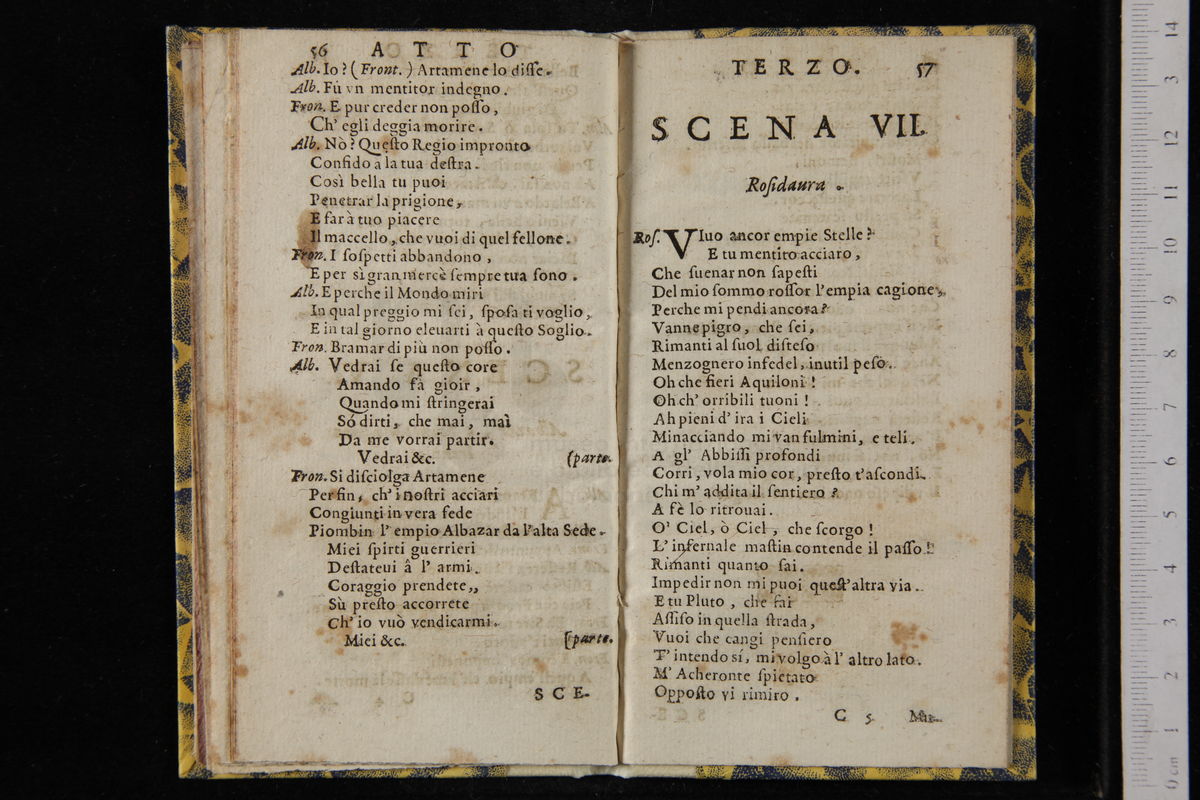 56 ATTO
Alb. Io? (Front.) Artamene lo diſſe.
Alb. Fù vn mentitor indegno.
Fron. E pur creder non poſſo,
Ch' egli deggia morire.
Alb. Nò? Queſto Regio impronto
Confido a la tua deſtra.
Così bella tu puoi
Penetrar la prigione,
E farà tuo piacere
Il maccello, che vuoi di quel fellone.
Fron. I ſoſpetti abbandono,
E per sì gran mercè ſempre tua ſono.
Alb. E perche il Mondo miri
In qual preggio mi ſei, ſpoſa ti voglio,
E in tal giorno eleuarti à queſto Soglio.
Fron. Bramar di più non poſſo.
Alb. Vedrai ſe queſto core
Amando fà gioir,
Quando mi ſtringerai
Sò dirti, che mai, mai
Da me vorrai partir.
Vedrai &c. (parte.
Fron. Si diſciolga Artamene
Perfin, ch' i noſtri acciari
Congiunti in vera fede
Piombin l' empio Albazar da l'alta Sede.
Miei ſpirti guerrieri
Deſtateui â l' armi.
Coraggio prendete,,
Sù preſto accorrete
Ch' io vuò vendicarmi.
Miei &c. (parte.
SCE-
TERZO. 57
SCENA VII.
Roſidaura.
Roſ. VIuo ancor empie Stelle?
E tu mentito acciaro,
Che ſuenar non ſapeſti
Del mio ſommo roſſor l'empia cagione,
Perche mi pendi ancora?
Vanne pigro, che ſei,
Rimanti al ſuol diſteſo
Menzognero infedel, inutil peſo.
Oh che fieri Aquiloni!
Oh ch' orribili tuoni!
Ah pieni d' ira i Cieli
Minacciando mi van fulmini, e teli.
A gl' Abbiſſi profondi
Corri, vola mio cor, preſto t'aſcondi.
Chi m' addita il ſentiero?
A fè lo ritrouai.
O' Ciel, ò Ciel, che ſcorgo!
L' infernale maſtin contende il paſſo!
Rimanti quanto ſai.
Impedir non mi puoi queſt'altra via.
E tu Pluto, che fai
Aſſiſo in quella ſtrada,
Vuoi che cangi penſiero
T' intendo sí, mi volgo à l' altro lato.
M' Acheronte ſpietato
Oppoſto vi rimiro.
C 5
14
3
12
11
10
9
8
7
6
5
4
3
2
1
0 cm